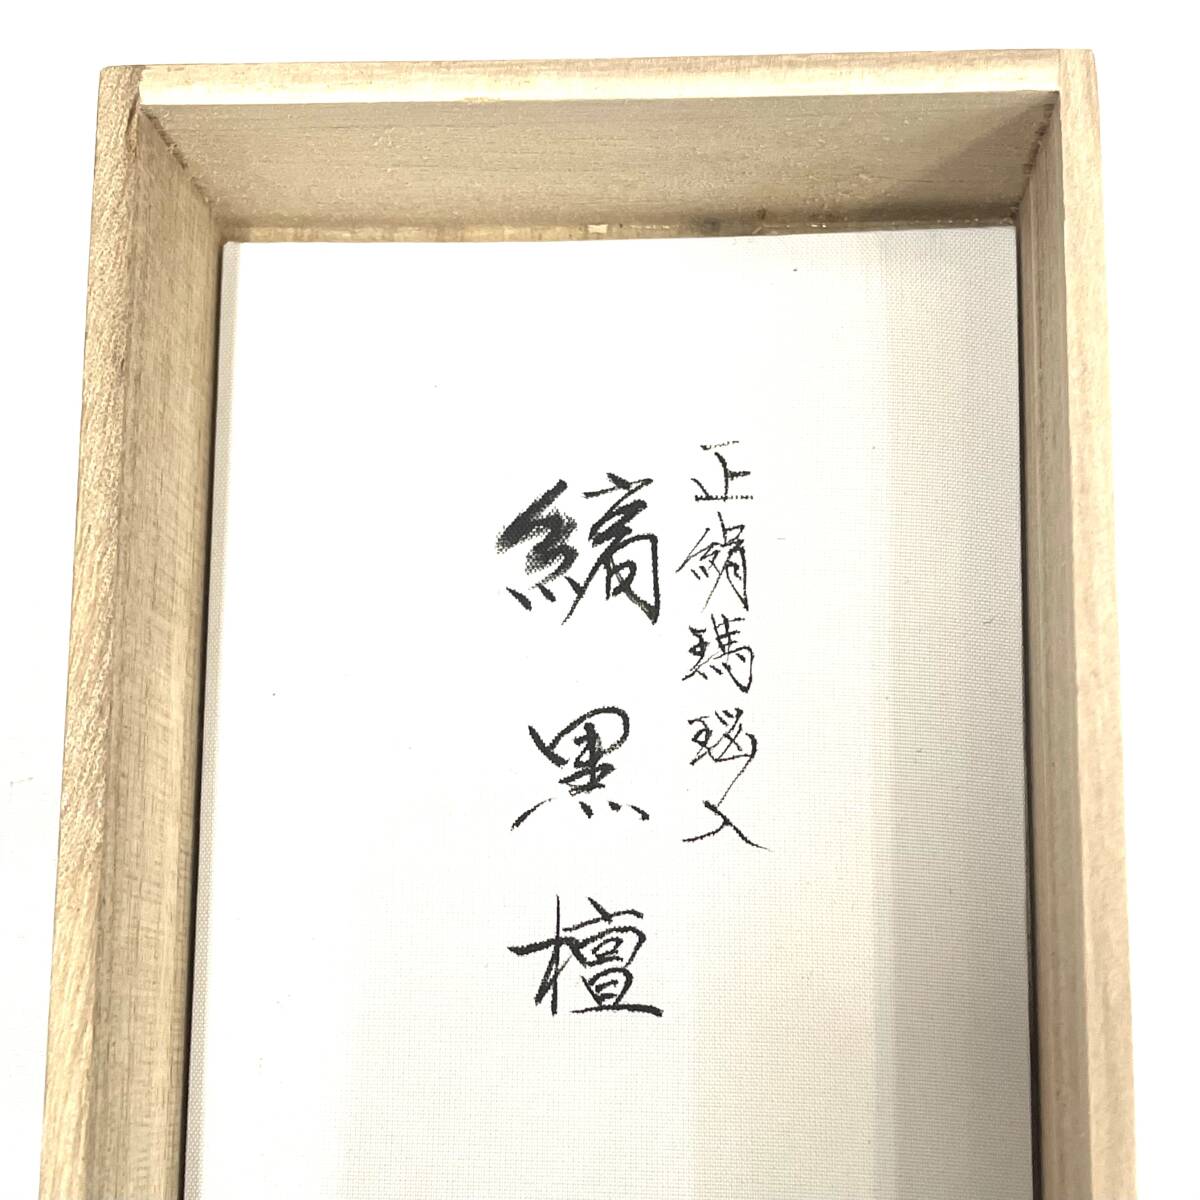 正絹瑪瑙入
縞黒檀